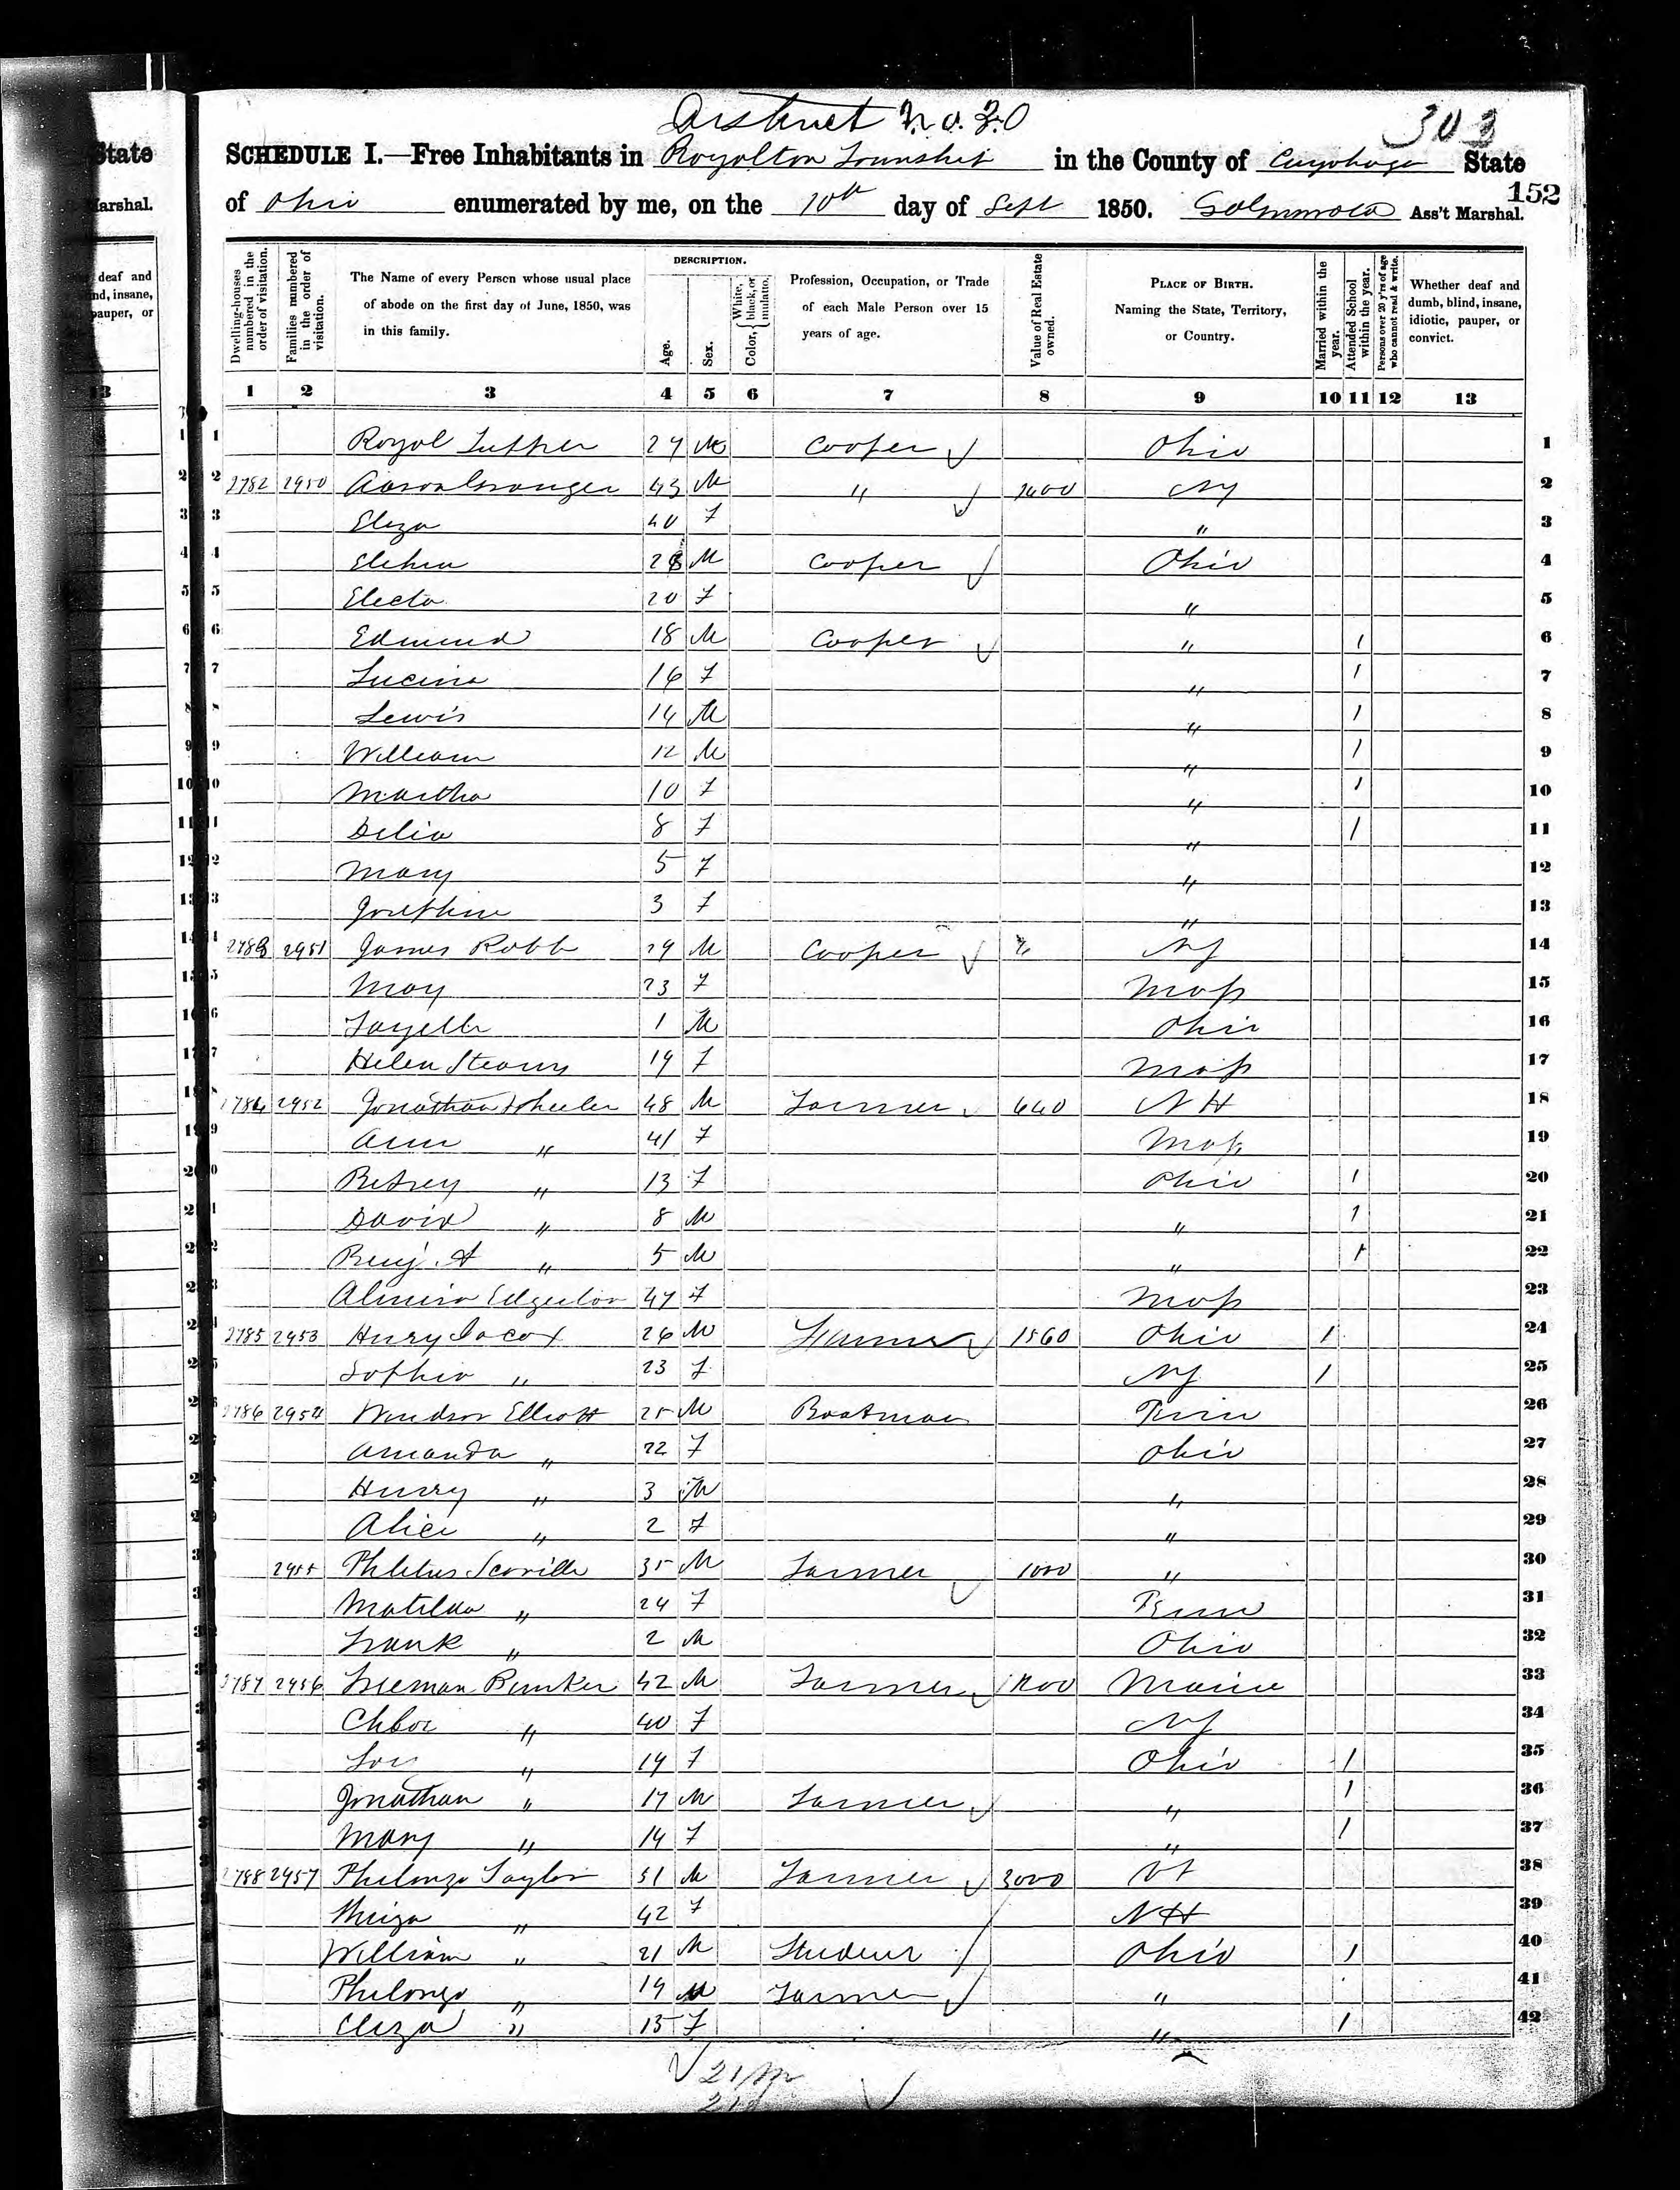 State
Marshal.
deaf and
nd, insane,
pauper, or
13
District No. 20
303
SCHEDULE I.—Free Inhabitants in Royalton Township in the County of Cuyahoga State
152
of Ohio enumerated by me, on the 10th day of Sept 1850. Ass't Marshal.
Dwelling-houses numbered in the order of visitation.
Families numbered in the order of visitation.
The Name of every Person whose usual place of abode on the first day of June, 1850, was in this family.
DESCRIPTION.
Age.
Sex.
Color, { White, black, or mulatto.
Profession, Occupation, or Trade of each Male Person over 15 years of age.
Value of Real Estate owned.
PLACE OF BIRTH. Naming the State, Territory, or Country.
Married within the year.
Attended School within the year.
Persons over 20 y'rs of age who cannot read & write.
Whether deaf and dumb, blind, insane, idiotic, pauper, or convict.
1 2 3 4 5 6 7 8 9 10 11 12 13
1 Royal M Cooper Ohio 1
2 2782 2950 Aaron Granger 43 M " NY 2
3 Eliza 40 F " 3
4 M Cooper Ohio 4
5 Electa 20 F " 5
6 Edmund 18 M Cooper " 1 6
7 Lucina 16 F " 1 7
8 Lewis 14 M " 1 8
9 William 12 M " 1 9
10 Martha 10 F " 1 10
11 Delia 8 F " 1 11
12 Mary 5 F " 12
13 Josephine 3 F " 13
14 2783 2951 James Robb 29 M Cooper NY 14
15 May 23 F Mass 15
16 1 M Ohio 16
17 Helen Stearns 19 F Mass 17
18 2784 2952 Jonathan Wheeler 48 M Farmer 640 NH 18
19 Ann " 41 F Mass 19
20 Betsey " 13 F Ohio 1 20
21 David " 8 M " 1 21
22 Benj. A " 5 M " 1 22
Almira Edgerton 47 F Mass 23
2785 2953 Henry 26 M Farmer 1560 Ohio 1 24
Sophia " 23 F NY 1 25
2786 2954 Windsor Elliott 25 M Boatman Penn 26
Amanda " 22 F Ohio 27
Henry " 3 M " 28
Alice " 2 F " 29
2955 Philetus Scoville 35 M Farmer 1000 " 30
Matilda " 24 F Penn 31
Frank " 2 M Ohio 32
2787 2956 Freeman Bunker 42 M Farmer Maine 33
Chloe " 40 F NY 34
" 19 F Ohio 1 35
Jonathan " 17 M Farmer " 1 36
Mary " 14 F " 1 37
2788 2957 Philonzo Taylor 51 M Farmer 3000 Vt 38
" 42 F NH 39
William " 21 M Student Ohio 1 40
Philonzo " 19 M Farmer " 41
Eliza " 15 F " 1 42
21 m